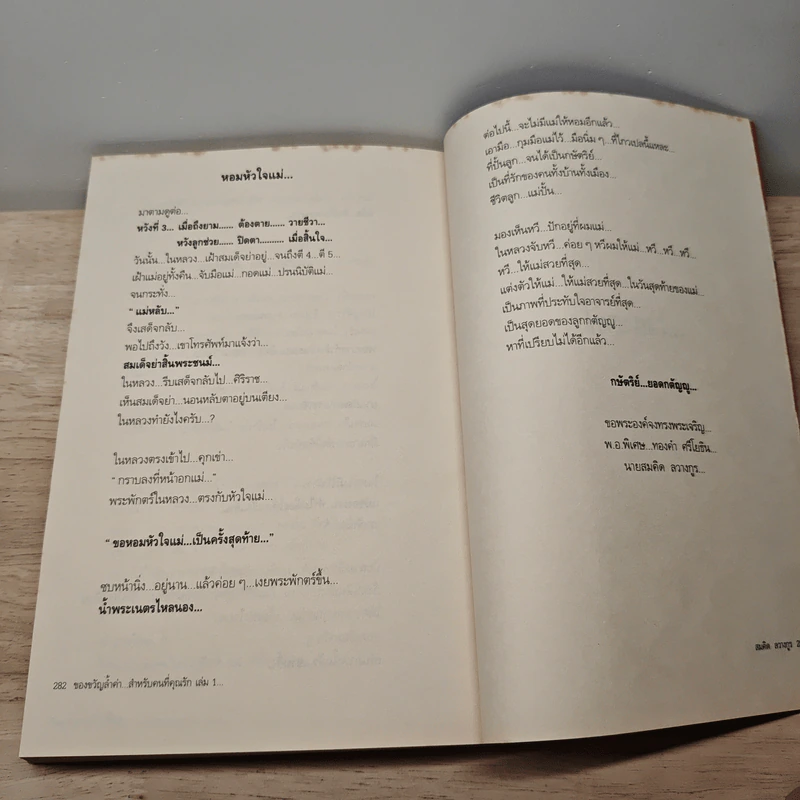 หอมหัวใจแม่...
มาตามดูต่อ...
หวังที่ 3... เมื่อถึงยาม...... ต้องตาย...... วายชีวา...
หวังลูกช่วย...... ปิดตา.......... เมื่อสิ้นใจ...
วันนั้น...ในหลวง...เฝ้าสมเด็จย่าอยู่...จนถึงตี 4...ตี 5...
เฝ้าแม่อยู่ทั้งคืน...จับมือแม่...กอดแม่...ปรนนิบัติแม่...
จนกระทั่ง...
“ แม่หลับ...”
จึงเสด็จกลับ...
พอไปถึงวัง...เขาโทรศัพท์มาแจ้งว่า...
สมเด็จย่าสิ้นพระชนม์...
ในหลวง...รีบเสด็จกลับไป...ศิริราช...
เห็นสมเด็จย่า...นอนหลับตาอยู่บนเตียง...
ในหลวงทำยังไงครับ...?
ในหลวงตรงเข้าไป...คุกเข่า...
“ กราบลงที่หน้าอกแม่...”
พระพักตร์ในหลวง...ตรงกับหัวใจแม่...
“ ขอหอมหัวใจแม่...เป็นครั้งสุดท้าย...”
ซบหน้านิ่ง...อยู่นาน...แล้วค่อย ๆ...เงยพระพักตร์ขึ้น...
น้ำพระเนตรไหลนอง...
282 ของขวัญล้ำค่า...สำหรับคนที่คุณรัก เล่ม 1...
ต่อไปนี้...จะไม่มีแม่ให้หอมอีกแล้ว...
เอามือ...กุมมือแม่ไว้...มือนิ่ม ๆ...ที่ไกวเปลนี้แหละ...
ที่ปั้นลูก...จนได้เป็นกษัตริย์...
เป็นที่รักของคนทั้งบ้านทั้งเมือง...
ชีวิตลูก...แม่ปั้น...
มองเห็นหวี...ปักอยู่ที่ผมแม่...
ในหลวงจับหวี...ค่อย ๆ หวีผมให้แม่...หวี...หวี...หวี...
หวี...ให้แม่สวยที่สุด...
แต่งตัวให้แม่...ให้แม่สวยที่สุด...ในวันสุดท้ายของแม่...
เป็นภาพที่ประทับใจอาจารย์ที่สุด...
เป็นสุดยอดของลูกกตัญญู...
หาที่เปรียบไม่ได้อีกแล้ว...
กษัตริย์...ยอดกตัญญู...
ขอพระองค์จงทรงพระเจริญ...
พ.อ.พิเศษ...ทองคำ ศรีโยธิน...
นายสมคิด ลวางกูร...
สมคิด ลวางกูร